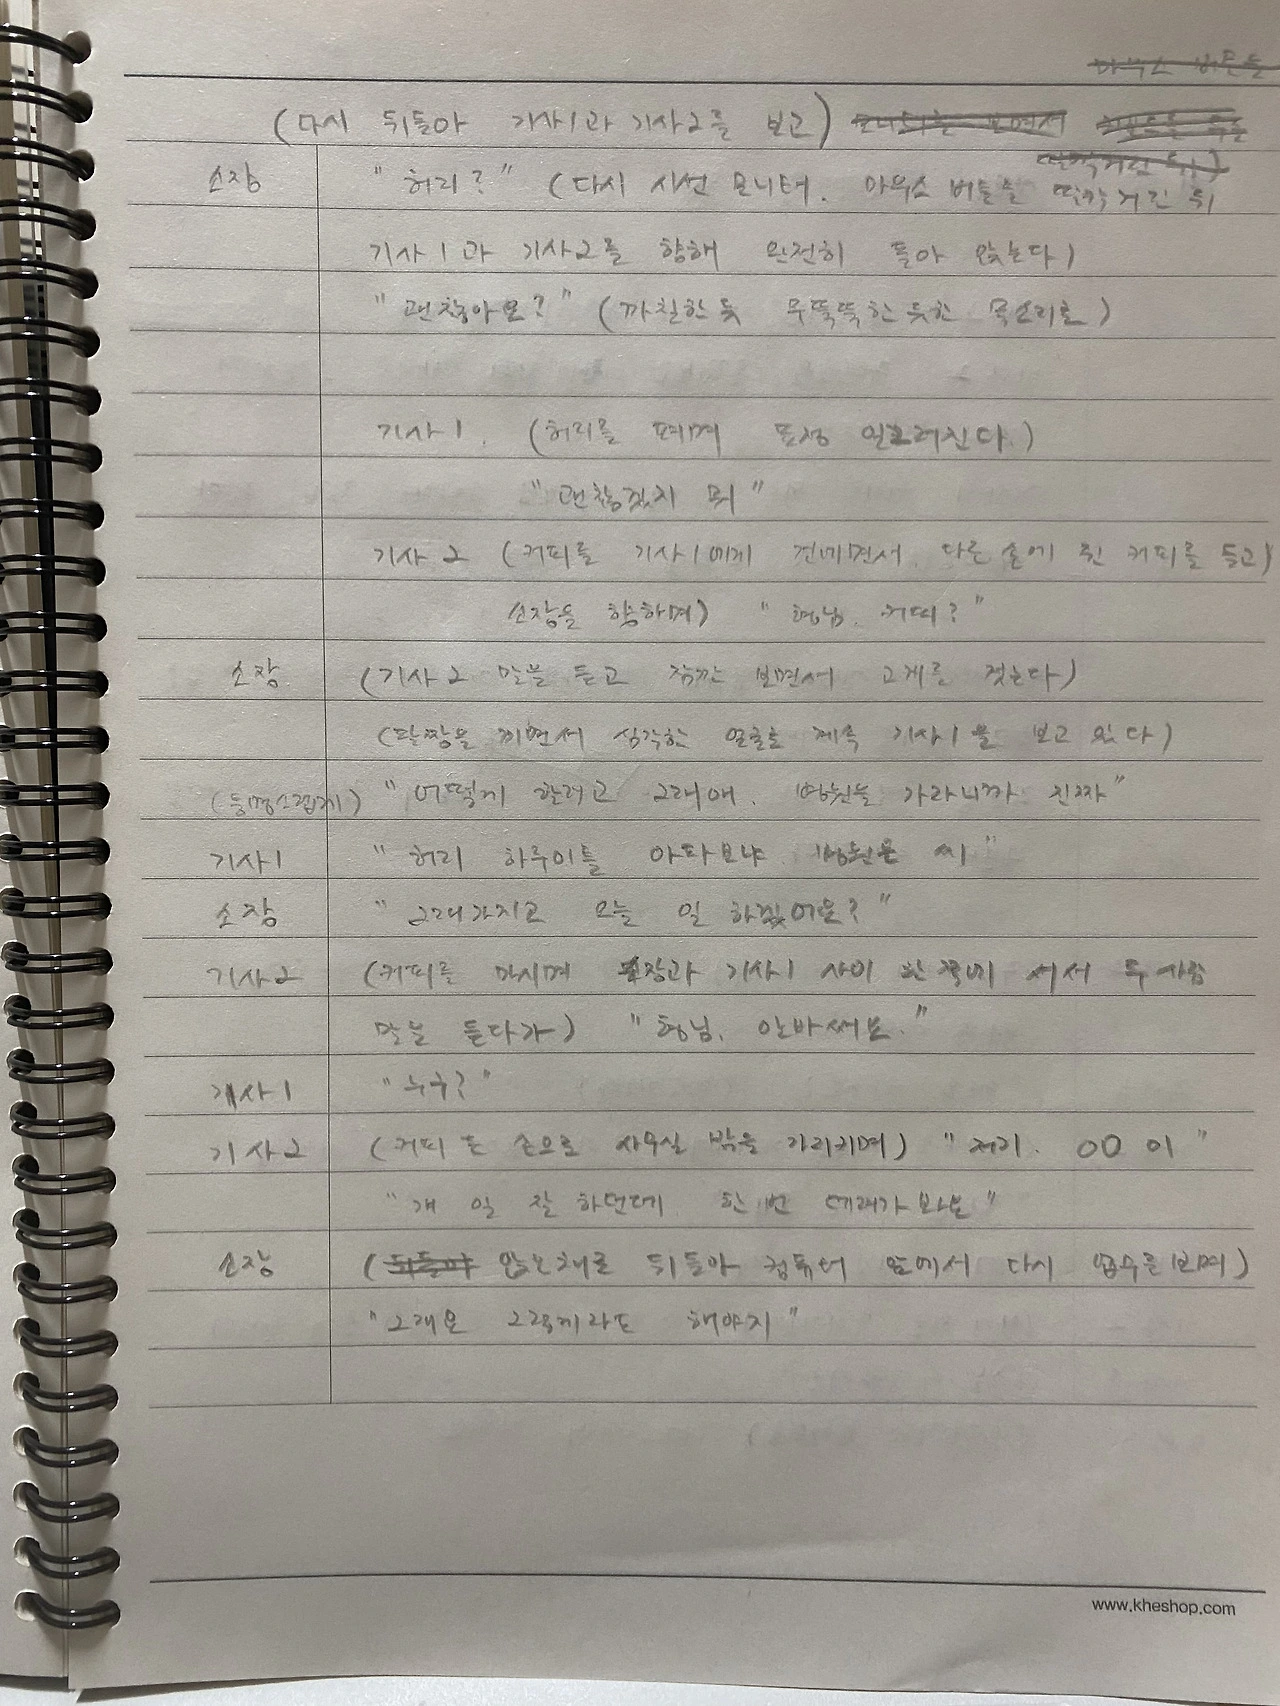 마우스 버튼을
(다시 뒤돌아 기사1과 기사2를 보고) 모니터를 보면서
딸깍거린 뒤)
소장 "허리?" (다시 시선 모니터. 마우스 버튼을 딸깍거린 뒤
기사1과 기사2를 향해 완전히 돌아 앉는다)
"괜찮아요?" (까칠한 듯 무뚝뚝한 듯한 목소리로)
기사1. (허리를 펴며 표정 일그러진다.)
"괜찮겠지 뭐"
기사2 (커피를 기사1에게 건네면서. 다른 손에 쥔 커피를 들고)
소장을 향하며) "형님. 커피?"
소장 (기사2 말을 듣고 잠깐 보면서 고개를 젓는다)
(팔짱을 끼면서 심각한 얼굴로 계속 기사1을 보고 있다)
(퉁명스럽게) "어떻게 할려고 그래애. 병원을 가라니까 진짜"
기사1 "허리 하루이틀 아파보냐. 병원은 씨"
소장 "그래가지고 오늘 일 하겠어요?"
기사2 (커피를 마시며 소장과 기사1 사이 한쪽에 서서 두사람
말을 듣다가) "형님. 안바쁘요."
기사1 "누구?"
기사2 (커피 든 손으로 사무실 밖을 가리키며) "저기. OO이"
"걔 일 잘 하던데. 한번 데려가봐요"
소장 (뒤돌아 앉는채로 뒤돌아 컴퓨터 앞에서 다시 업무를보며)
"그래요 그렇게라도 해야지"
www.kheshop.com